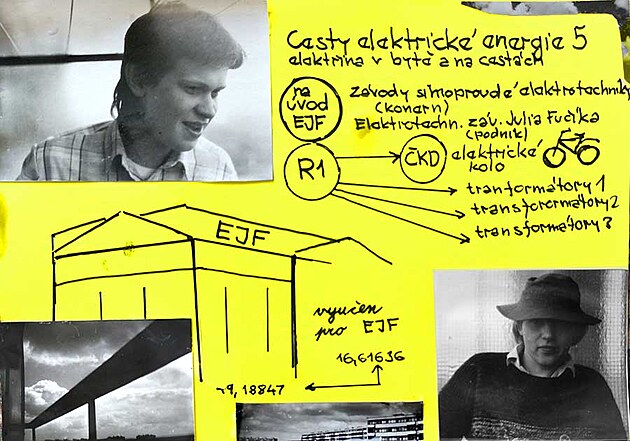 Cesty elektrické energie 5
elektřina v bytě a na cestách
na
úvod
EJF
závody silnoproudé elektrotechniky
(koncern)
Elektrotechn. záv. Julia Fučíka
(podnik)
R1
ČKD
elektrické
kolo
tranformátory 1
transformátory 2
transformátory 3
EJF
vyučen
pro EJF
16,61636
18847